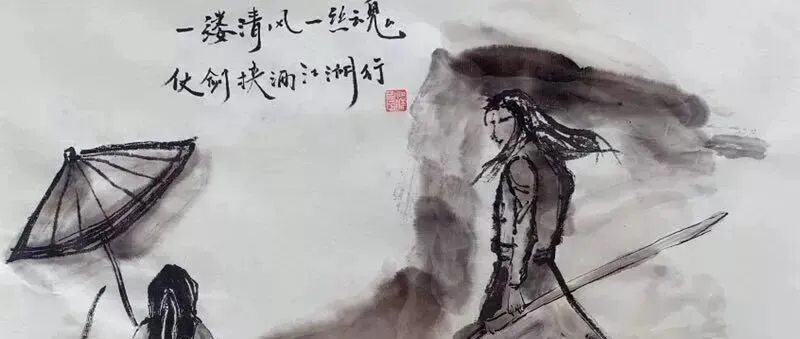 一缕清风一丝魂
仗剑挟酒江湖行